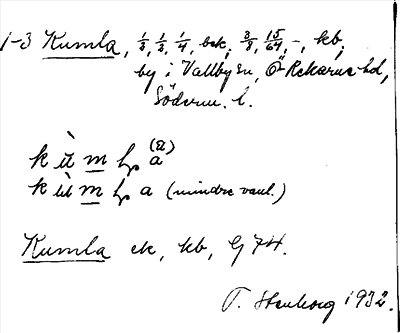 1-3 Kumla, 1/8, 1/2, 1/4, bck, 3/8, 15/64, -, kb,
by i Vallby sn, Ö Rekarne hd,
Söderm. l.
k ù m l a (a)
k ù m l a (mindre vanl.)
Kumla ek, kb, G 74.
T. Stenborg 1932.